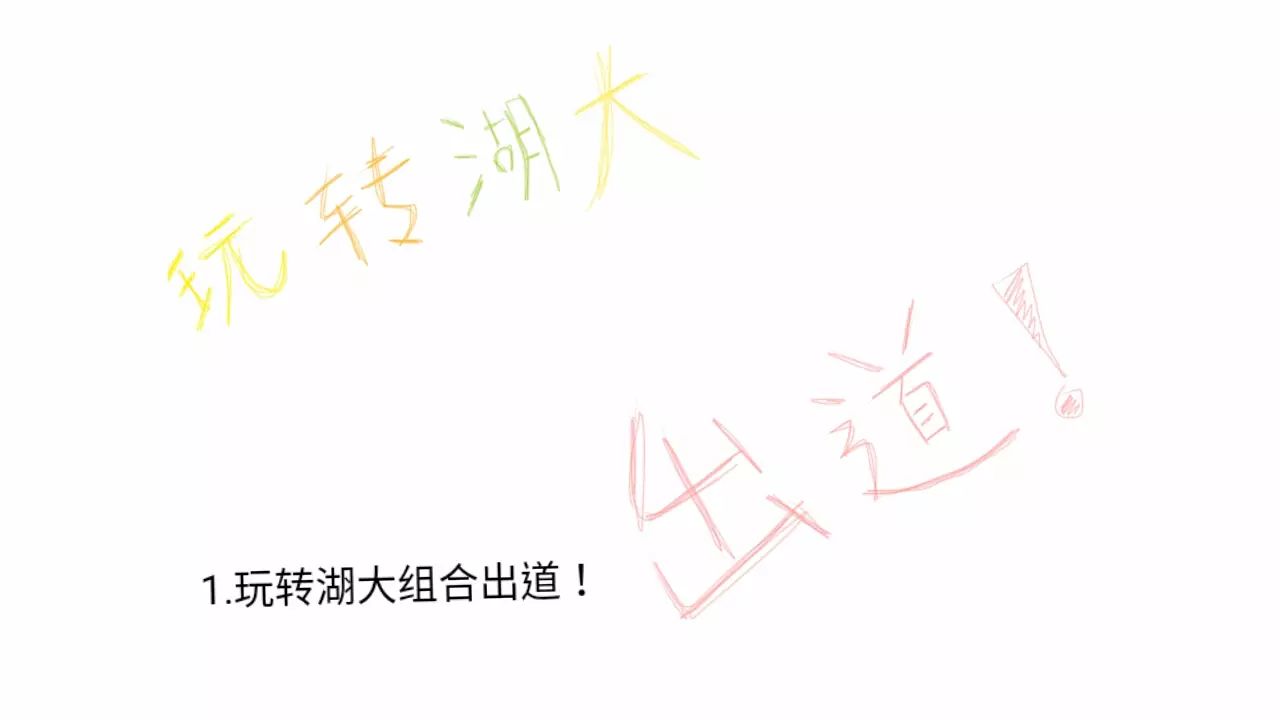 玩转湖大
出道！
1.玩转湖大组合出道！